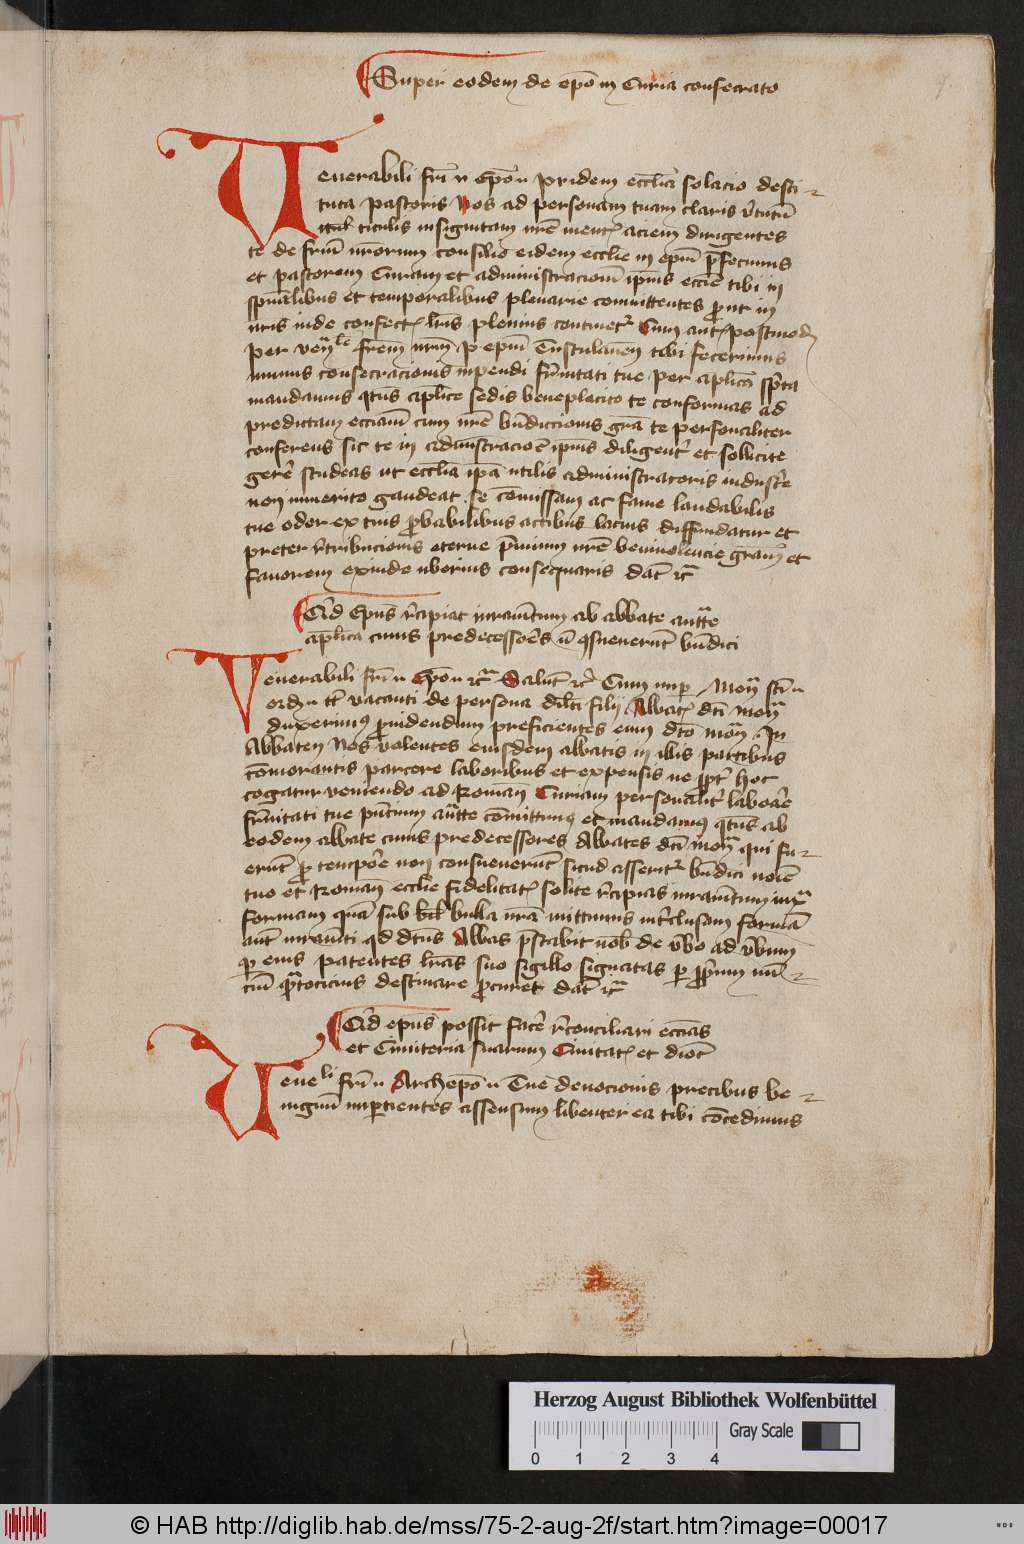 Super eodem de epo in Curia consecrato
Venerabili fri n epo n pridem ecclia solacio desti
tuta pastoris Nos ad personam tuam claris vtutu
titulis insignitam nre ment aciem dirigentes
te de frum nrorum consilio eidem ecclie in epm pfecimus
et pastorem Curam et administracionem ipius eccie tibi in
spualibus et temporalibus plenarie committentes prout in
nris inde confect lris plenius continetr Cum aut postmod
per venle frem nrm p epm Tusculanen tibi fecerimus
munus consecracionis inpendi frnitati tue per aplica scpta
mandamus qtus aplice sedis beneplacito te conformas ad
predictam ecciam cum nre bndiccionis gra te personaliter
conferens sic te in administracioe ipius diligentr et sollicite
gere studeas ut ecclia ipa utilis administratoris industrie
non inmerito gaudeat se comissam ac fame laudabilis
tue odor ex tuis pbabilibus actibus lacius diffundatur et
preter retribucionis eterne pmium nre benivolencie gram et
favorem exinde uberius consequaris dat etc
Ad Epus recipiat iuramtum ab abbate auctte
aplica cuius predecessores n qsueuerunt bndici
Venerabili fri n Epo n etc Salut etc Cum nup Mon sti n
ordis n tc vacanti de persona dilci filij Abbat dci Mon
duxerimus pvidendum preficientes eum dco mon In
Abbatem Nos volentes eiusdem abbatis in illis partibus
comorantis parcere laboribus et expensis ne ppt hoc
cogatur veniendo ad Roman Curiam personalitr laborare
frnitati tue pntium auctte comittimus et mandamus qtus ab
eodem abbate cuius predecessores Abbates dci mon qui fu
erunt p tempore non consueuerunt sicud asseritr bndici noie
tuo et Roman ecclie fidelitat solite recipias iuramtum iuxta
formam qua sub bulla nra mittimus intclusam forma
aut iurameti qd dcus Abbas pstabit nob de vbo ad vbum
p eius patentes lras suo sigillo signatas p pprium nun
cium qtocicius destinare pcuret dat etc
Ad epus possit face reconciliari eccias
et Cimiteria suarum Ciuitat et dioc
Veneli fri n Archiepo n Tue deuocionis precibus be
nignum inpertientes assensum libenter ea tibi concedimus
Herzog August Bibliothek Wolfenbüttel
Gray Scale
0 1 2 3 4
© HAB http://diglib.hab.de/mss/75-2-aug-2f/start.htm?image=00017